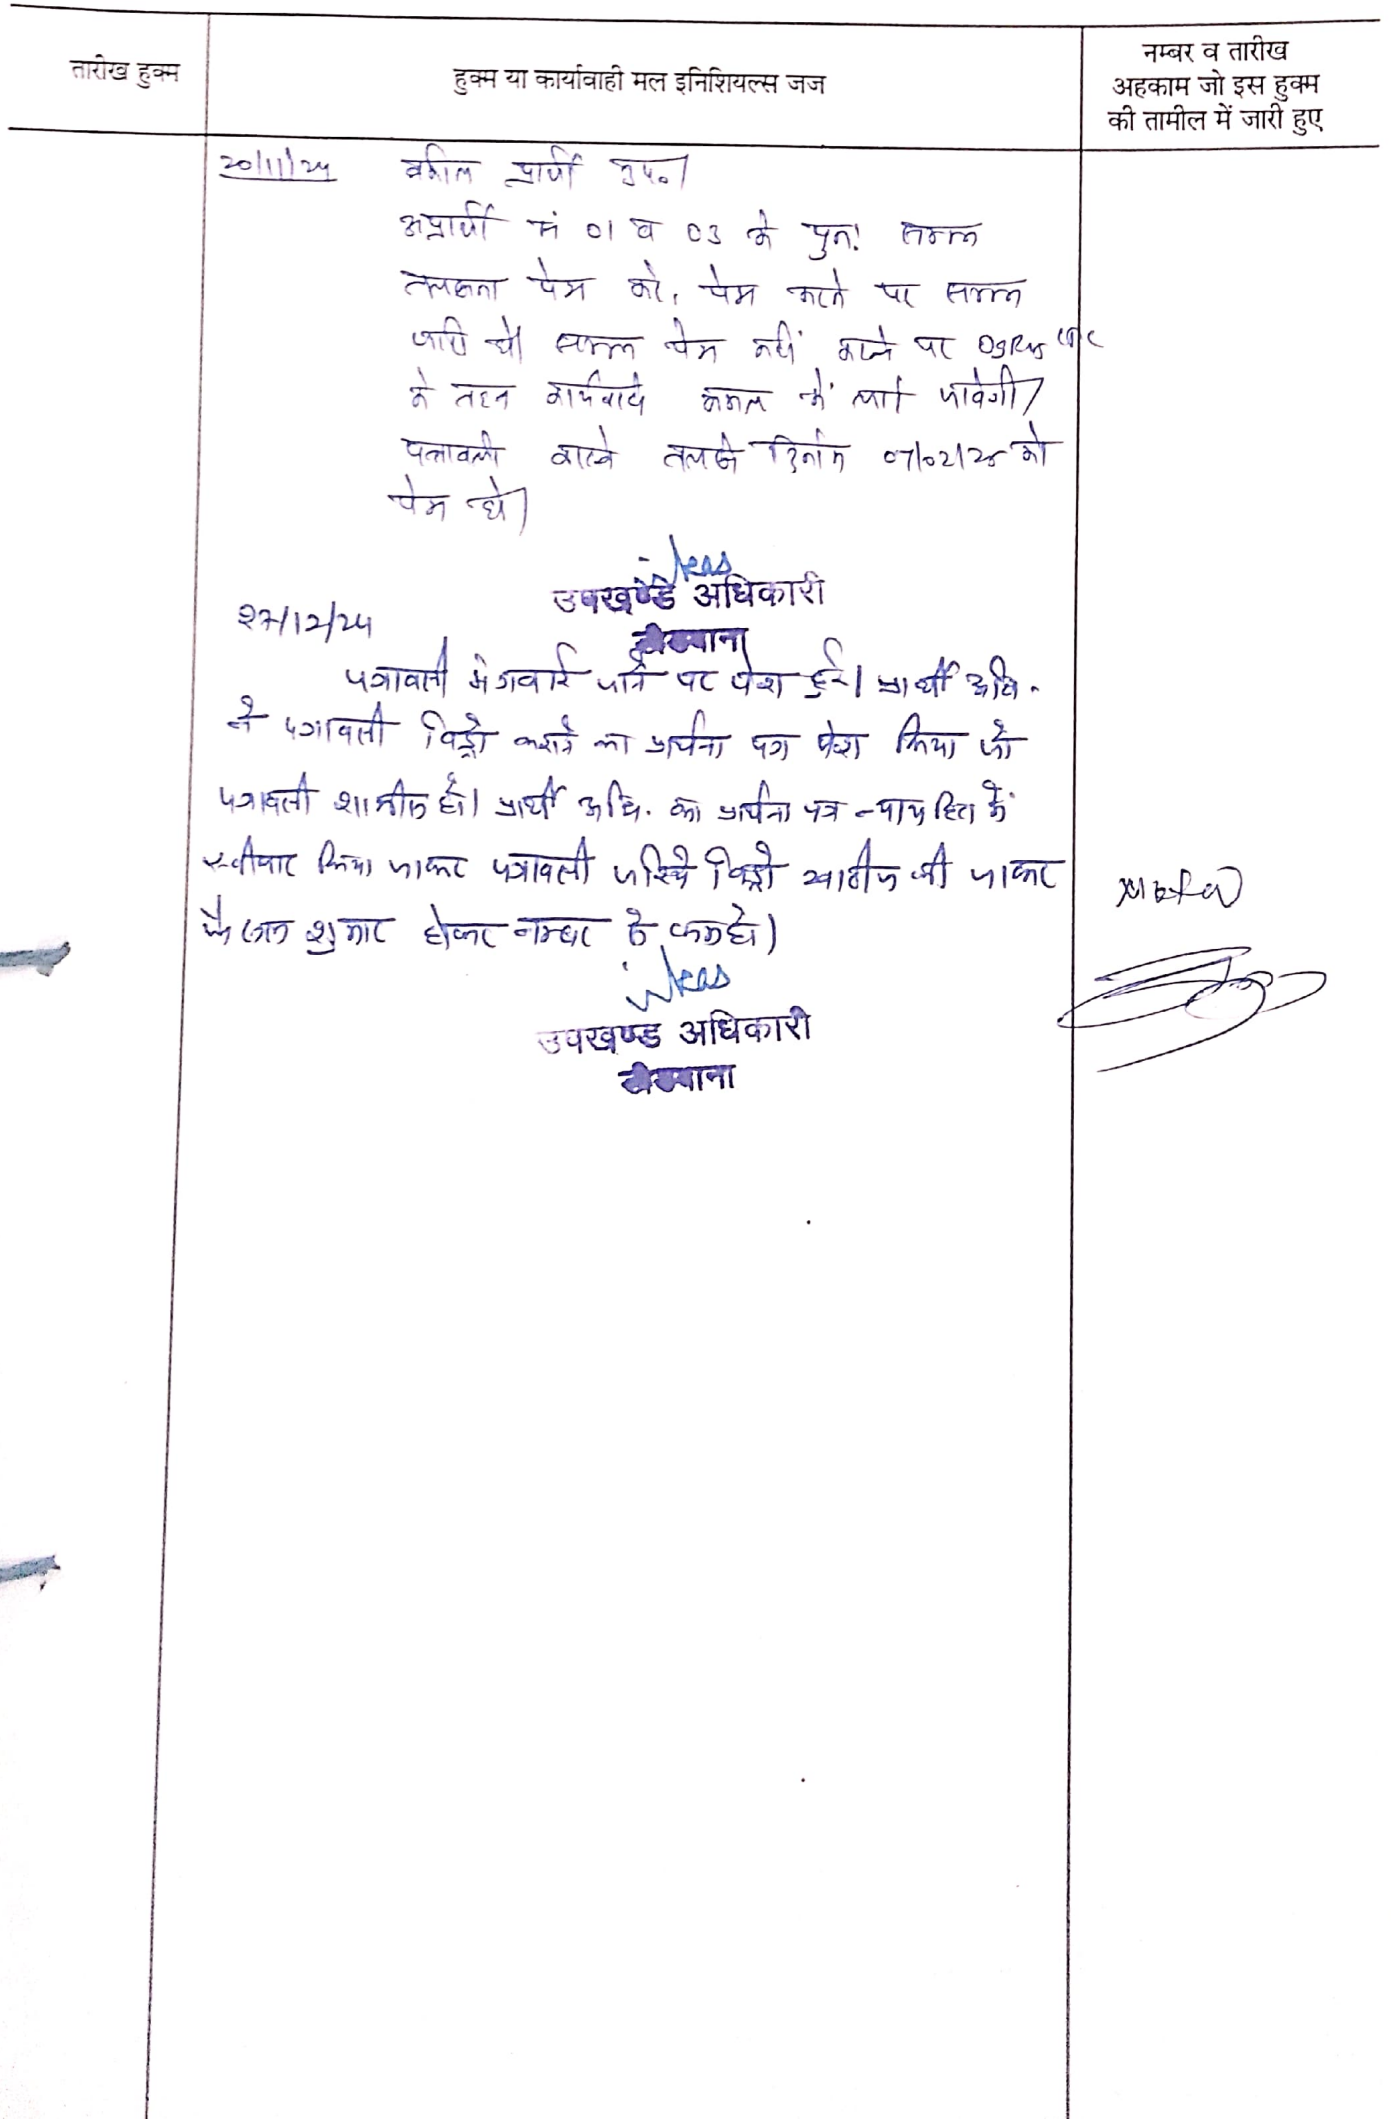 तारीख हुक्म
हुक्म या कार्यावाही मल इनिशियल्स जज
नम्बर व तारीख
अहकाम जो इस हुक्म
की तामील में जारी हुए
20/11/24 वकील प्रार्थी उप०।
अप्रार्थी सं 01 व 03 के पुनः सम्मन
तलबाना पेश करे, पेश करने पर सम्मन
जारी हो। सम्मन पेश नहीं करने पर 09R05 CPC
के तहत कार्यवाही अमल में लाई जावेगी।
पत्रावली वास्ते तलबी दिनांक 07/02/25 को
पेश हो।
उपखण्ड अधिकारी
27/12/24
पत्रावली मंगवाई जाने पर पेश हुई। प्रार्थी अधि.
ने पत्रावली विड्रो कराने का प्रार्थना पत्र पेश किया जो
पत्रावली शामील हो। प्रार्थी अधि. का प्रार्थना पत्र न्यायहित में
स्वीकार किया जाकर पत्रावली जरिये विड्रो खारीज की जाकर
फैसल शुमार होकर नम्बर से कम हो।
उपखण्ड अधिकारी